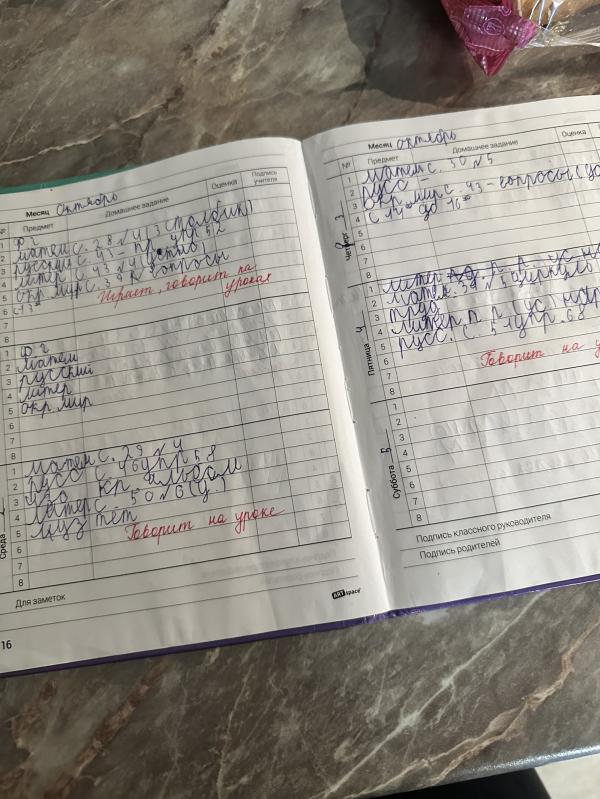 Месяц Октябрь
№ Предмет Домашнее задание Оценка Подпись учителя
1 Ф-ра
2 матем с. 28 №4 (3 столбик)
3 русский с. 41 - пр. упр. 52
4 литер с. 43 №4 (устно)
5 окр. мир с. 39 вопросы
6
7
8
Играет, говорит на уроках
1
2 матем
3 русский
4 литер
5 окр. мир
6
7
8
Среда
1 матем с. 29 №4
2 русс с. 46 упр 58
3 изо кр. альбом
4 литер с. 50 №6 (у.)
5 муз тет
6
7
8
Говорит на уроке
Для заметок
ARTspace
16
Месяц октябрь
№ Предмет Домашнее задание Оценка
Четверг 3
1 матем с. 30 №5
2 русс -
3 окр. мир с. 43 - вопросы
4 с 14 до 16
5
6
7
8
Пятница 4
1 литер
2 матем. 34 №5
3 труд
4 литер п. р.
5 русс. с. 51 упр. 68
6
7
8
Говорит на
Суббота 5
1
2
3
4
5
6
7
8
Подпись классного руководителя
Подпись родителей